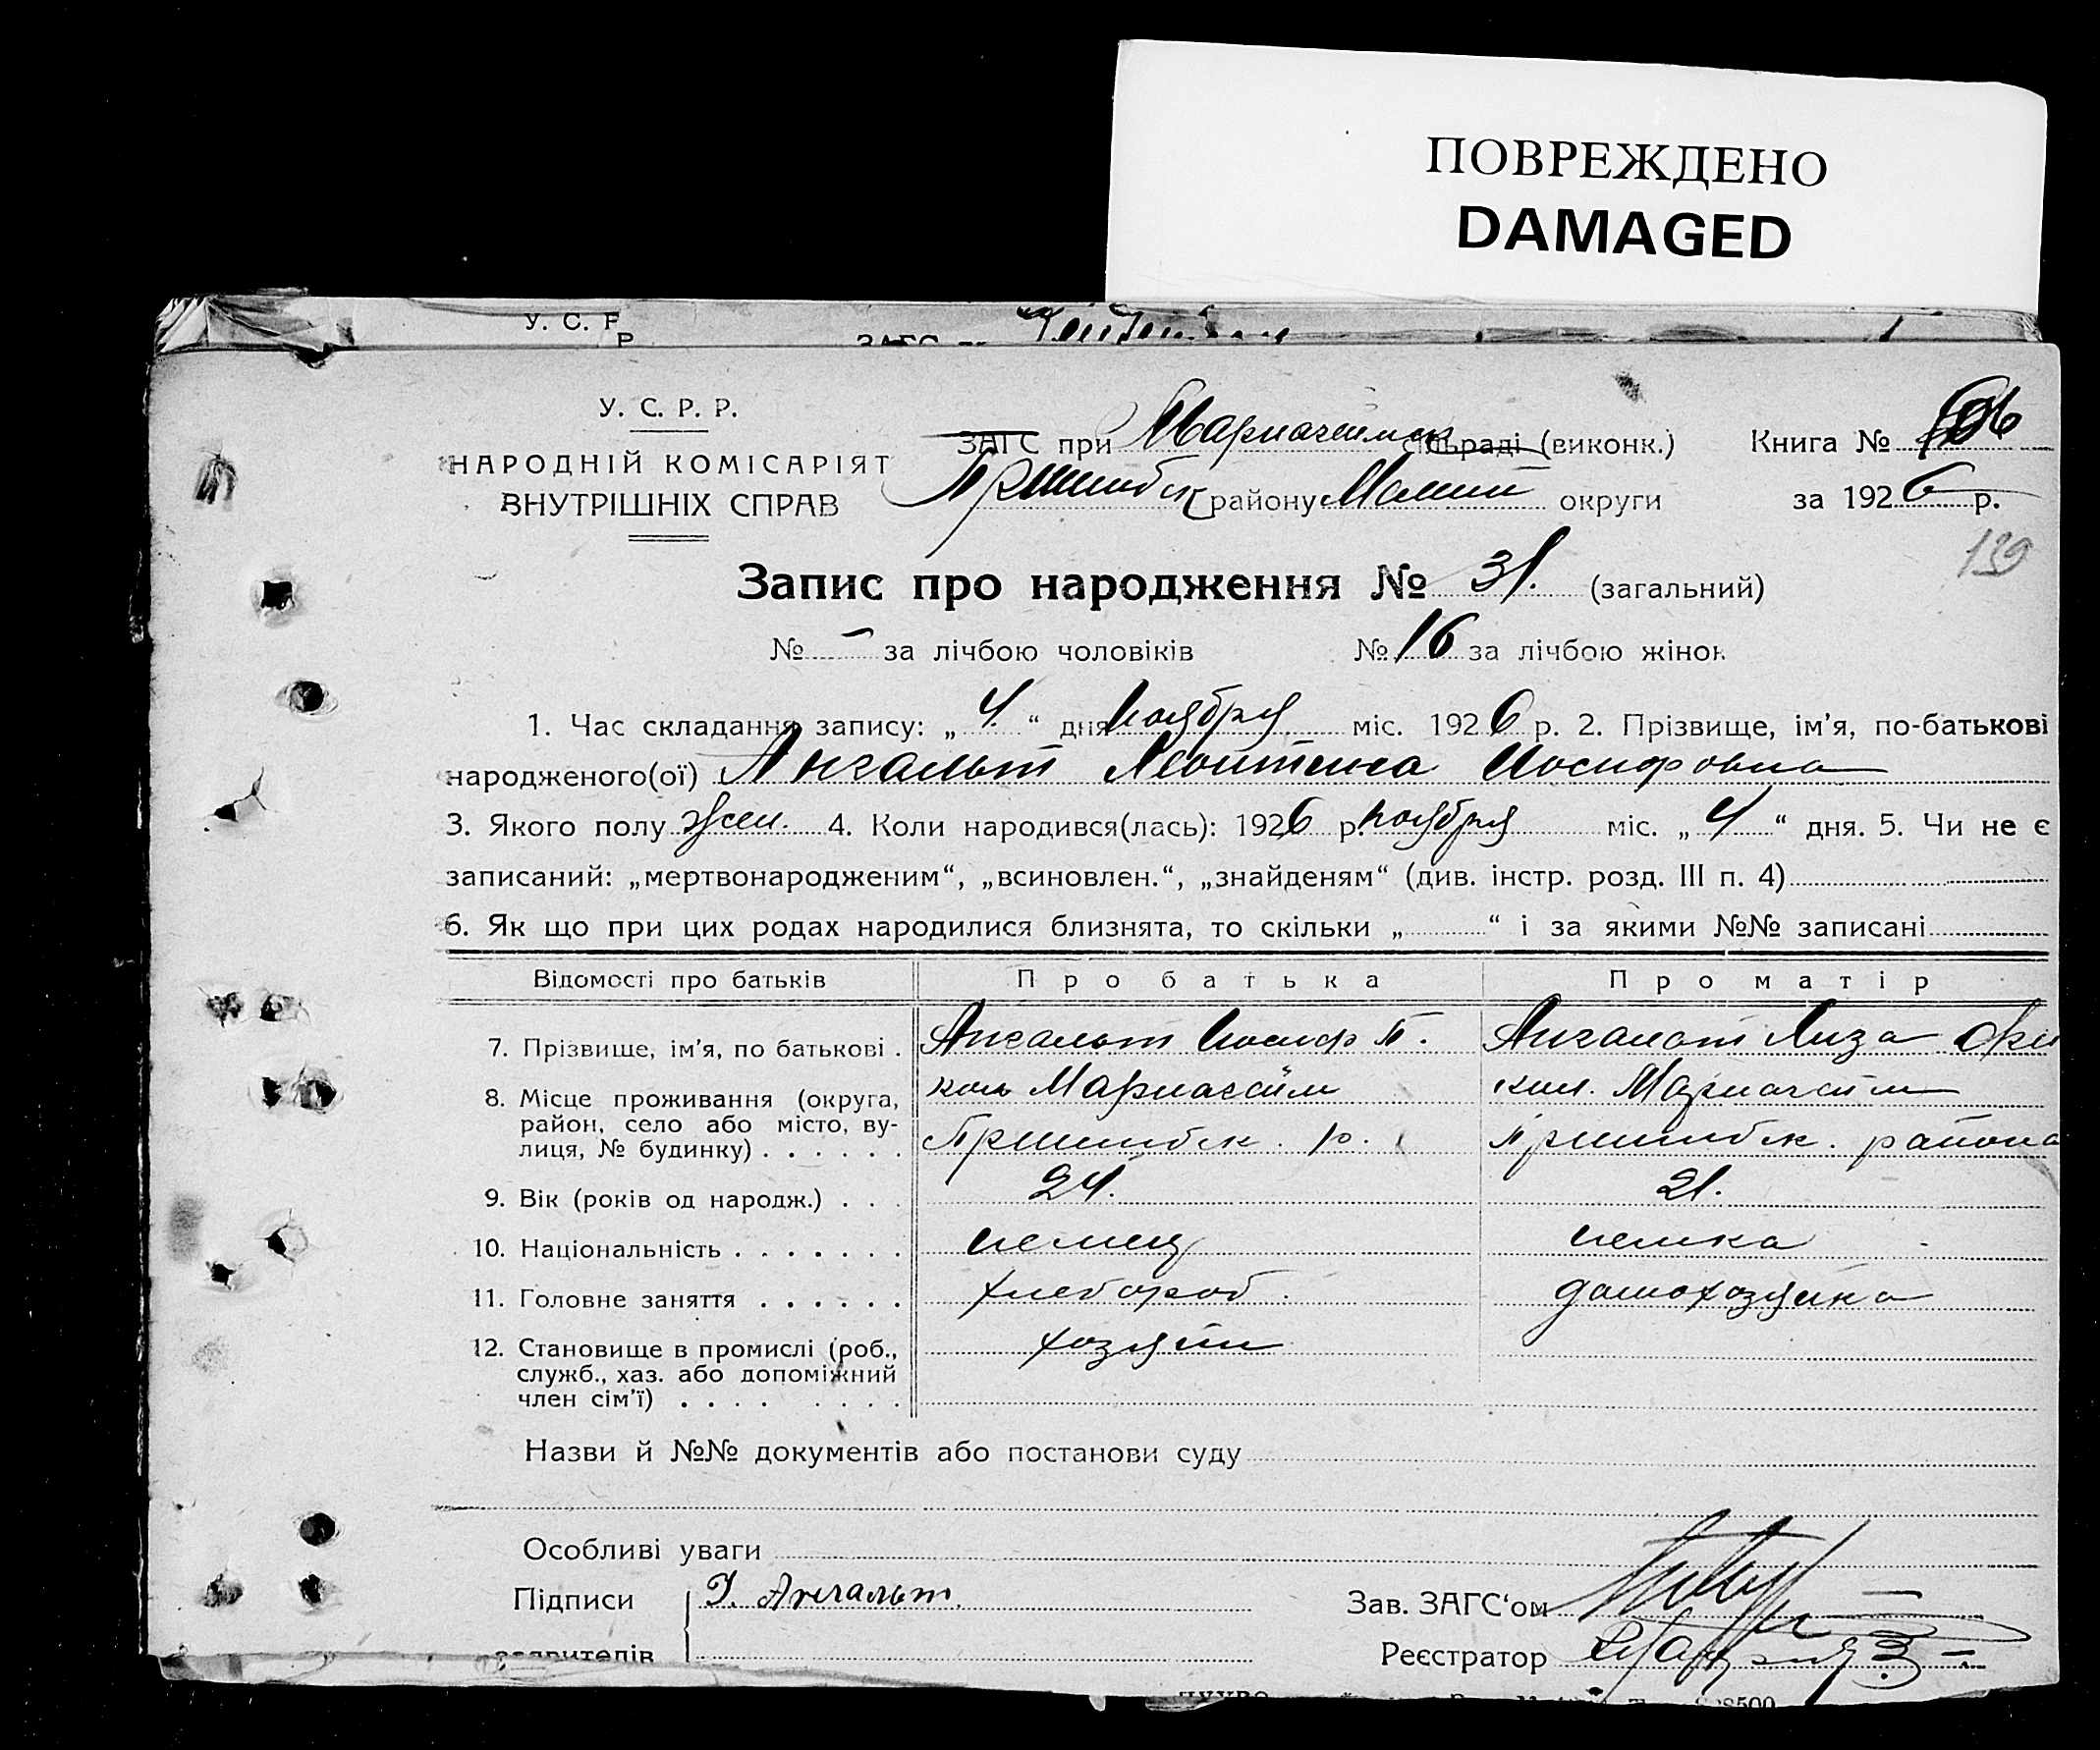 ПОВРЕЖДЕНО
DAMAGED
У. С. Р
У. С. Р. Р.
НАРОДНІЙ КОМІСАРІЯТ
ВНУТРІШНІХ СПРАВ
ЗАГС при Мариагеймск сільраді (виконк.)
Пришибск району Мелит округи
Книга №
за 1926 р.
139
Запис про народження № 31. (загальний)
№ – за лічбою чоловіків № 16 за лічбою жінок
1. Час складання запису: „ 4. “ дня ноября міс. 1926 р. 2. Прізвище, ім’я, по-батькові
народженого(ої) Ангальт Леонтина Иосифовна
3. Якого полу жен. 4. Коли народився(лась): 1926 р. ноября міс. „ 4 “ дня. 5. Чи не є
записаний: „мертвонародженим“, „всиновлен.“, „знайденям“ (див. інстр. розд. III п. 4)
6. Як що при цих родах народилися близнята, то скільки „ “ і за якими №№ записані
Відомості про батьків Про батька Про матір
7. Прізвище, ім’я, по батькові . Ангальт Иосиф П. Ангальт Лиза
8. Місце проживання (округа, кол Мариагейм кол. Мариагейм
район, село або місто, ву-
лиця, № будинку) . . . . . . Пришибск. р. Пришибск. района
9. Вік (років од народж.) . . . 24. 21.
10. Національність . . . . . . . немец немка
11. Головне заняття . . . . . . хлебороб. домохозяйка
12. Становище в промислі (роб., хозяин
служб., хаз. або допоміжний
член сім’ї) . . . . . . . .
Назви й №№ документів або постанови суду
Особливі уваги
Підписи І. Ангальт.
Зав. ЗАГС‘ом
заявителів
Реєстратор